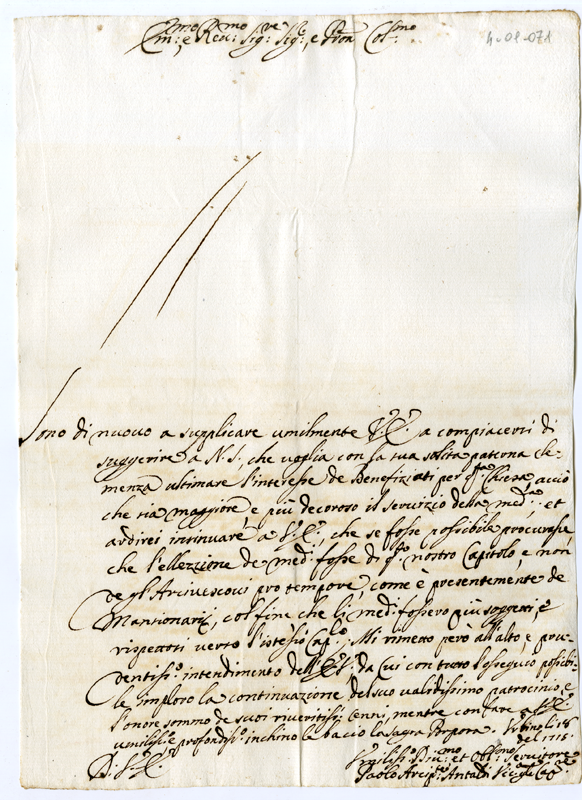 Em:mo e Rev:mo Sig:re Sig:re e Pron Col:mo
4-01-071
Sono di nuovo a supplicare umilmente V.E. a compiacersi di
suggerire a N.S. che voglia con la sua solita paterna cle-
menza ultimare l'interesse de Benefiziati per q:sta Chiesa, acciò
che sia maggiore, e più decoroso il servizio della med:ma et
ardirei insinuare a V.E., che se fosse possibile procurasse
che l'ellezzione de med:i fosse di q:sto nostro Capitolo, e non
de gl'Arcivescovi pro tempore, come è presentemente de
Mansionarij, col fine che li med:i fossero più soggetti, e
rispettosi verso l'istesso Cap:lo. Mi rimetto però all'alto, e pru-
dentiss:o intendimento dell'E.V. da cui con tutto l'ossequio possibi-
le imploro la continuazione del suo validissimo patrocinio e
l'onore sommo de suoi riveritiss:i cenni, mentre con fare a V.E.
umiliss:o e profondiss:o inchino le bacio la Sagra Porpora. Urbino li 18
del 1715.
D. V. E.
Umiliss:o Div:mo et Obl:mo Servitore
Paolo Arcip:te Antaldi